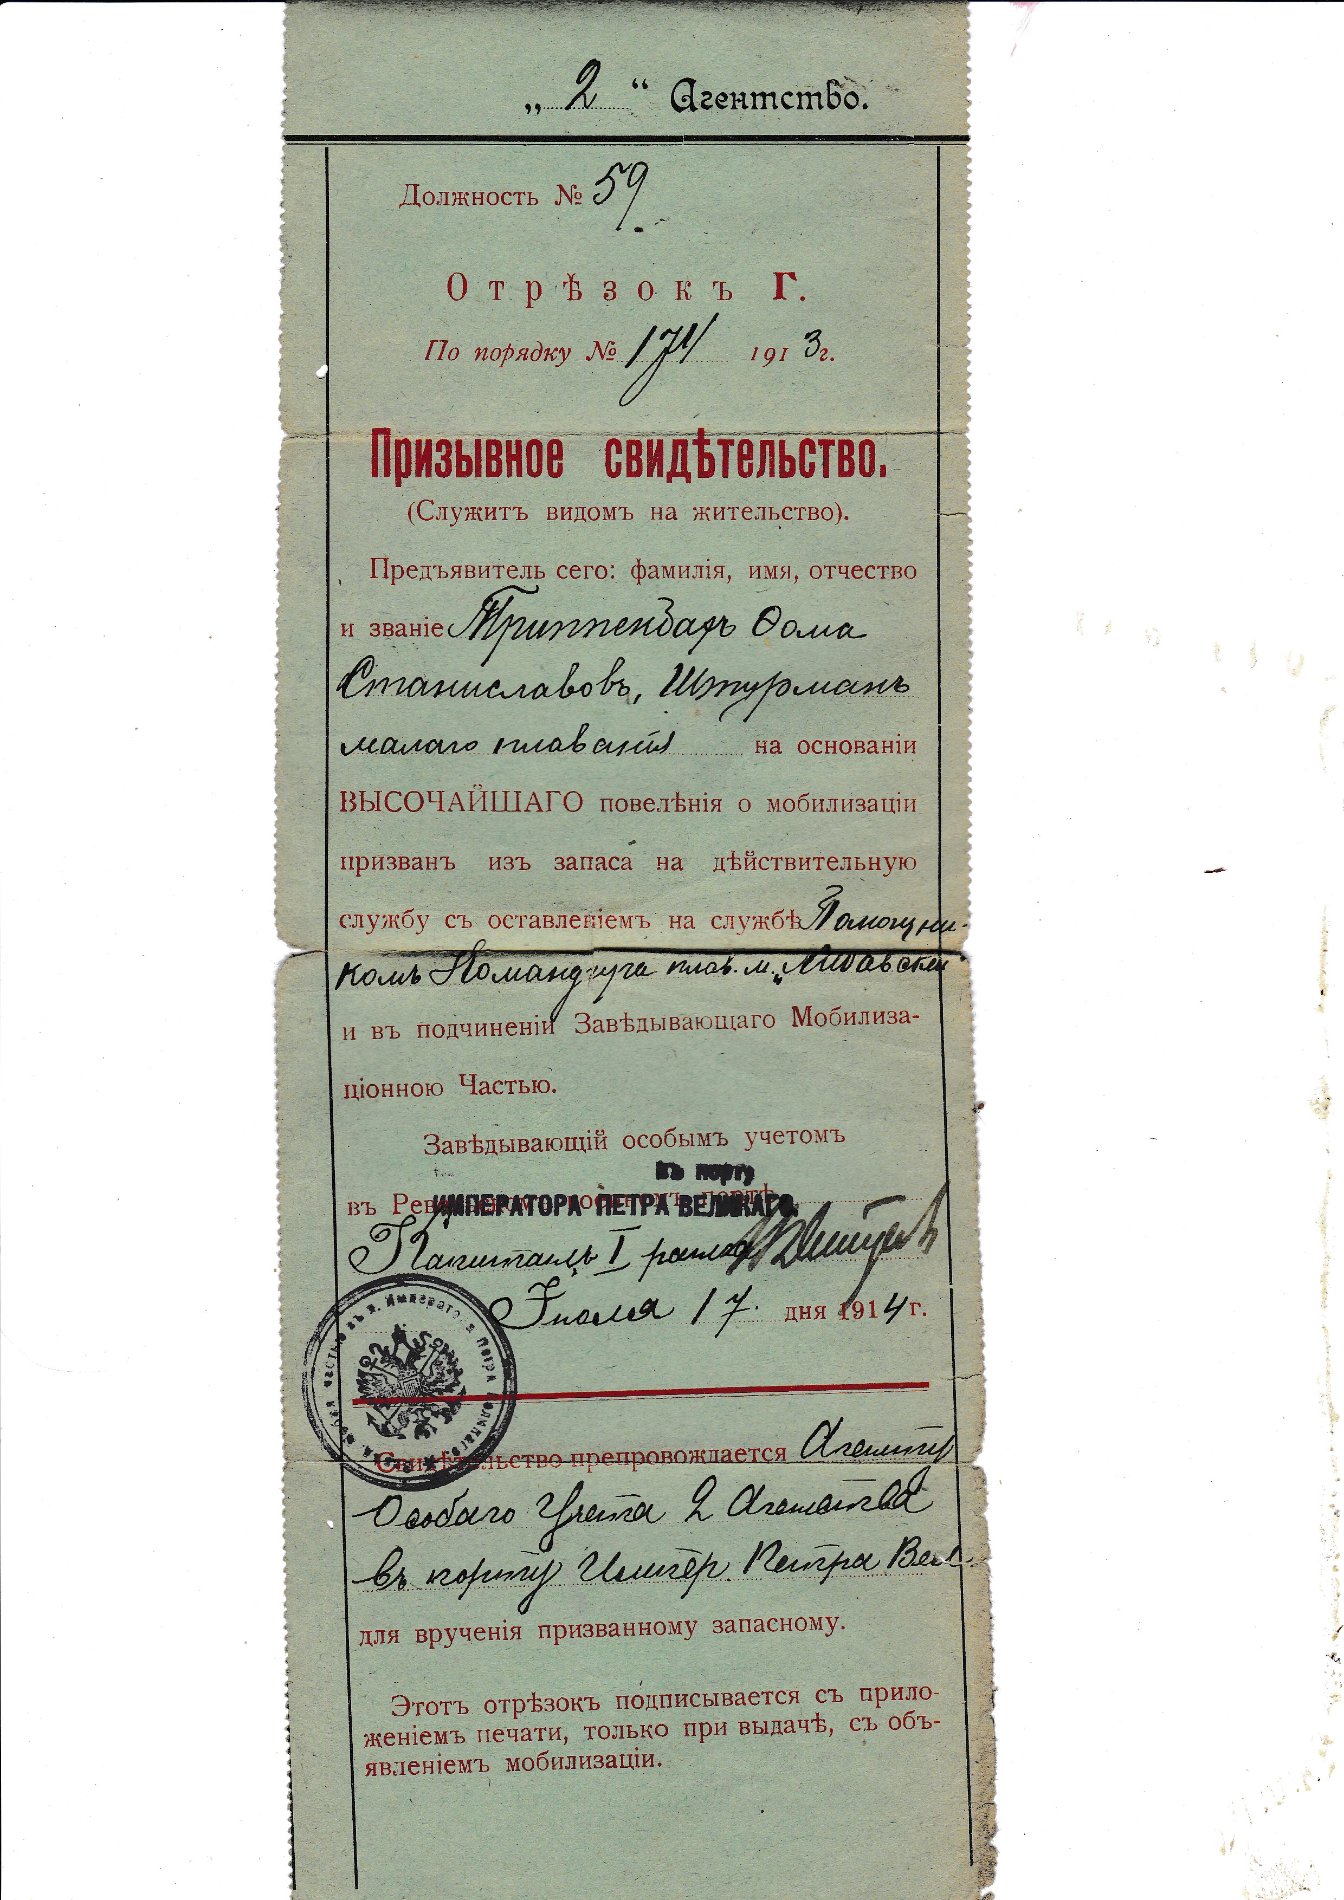 „ 2 “ Агентство.
Должность № 59.
Отрѣзокъ Г.
По порядку № 174 1913 г.
Призывное свидѣтельство.
(Служитъ видомъ на жительство).
Предъявитель сего: фамилія, имя, отчество
и званіе Триппенбахъ Ѳома
Станиславовъ, Штурманъ
малаго плаванія на основаніи
ВЫСОЧАЙШАГО повелѣнія о мобилизаціи
призванъ изъ запаса на дѣйствительную
службу съ оставленіемъ на службѣ Помощни-
комъ Командира плав. м. „Либавскій
и въ подчиненіи Завѣдывающаго Мобилиза-
ціонною Частью.
Завѣдывающій особымъ учетомъ
въ порту
въ портѣ
ИМПЕРАТОРА ПЕТРА ВЕЛИКАГО.
Капитанъ I ранга
Іюля 17 дня 1914 г.
Свидѣтельство препровождается Агенту
Особаго Учета 2 Агентства
въ порту Импер. Петра Вел.
для врученія призванному запасному.
Этотъ отрѣзокъ подписывается съ прило-
женіемъ печати, только при выдачѣ, съ объ-
явленіемъ мобилизаціи.